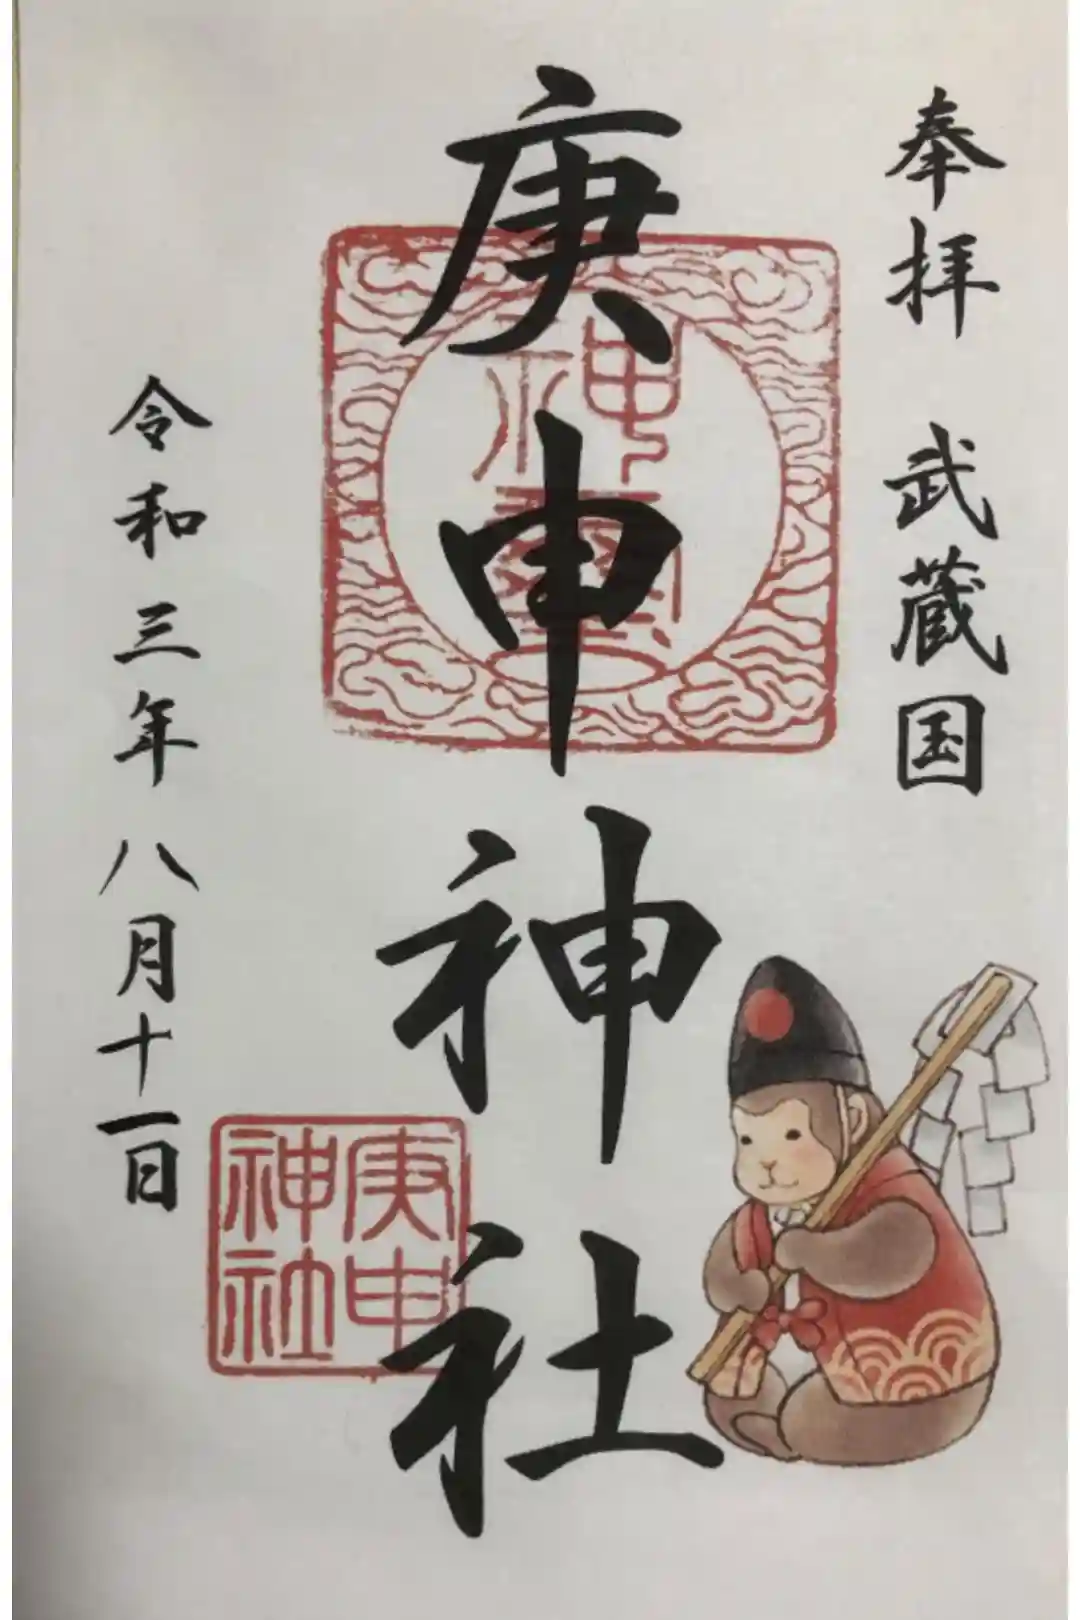 奉拝 武蔵国
庚申神社
令和三年 八月十一日
庚申
神社